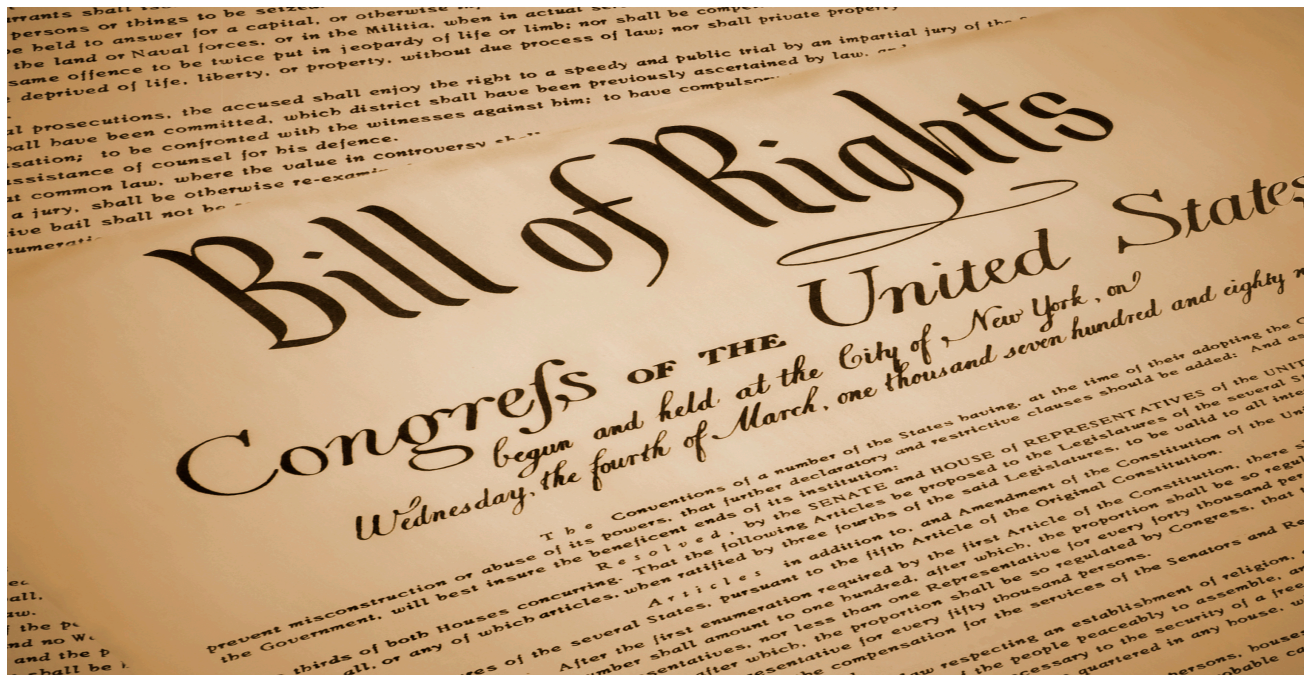 rrants shall
persons or things to be seized
be held to answer for a capital, or otherwise
the land or Naval forces, or in the Militia, when in actual
same offence to be twice put in jeopardy of life or limb; nor shall be
deprived of life, liberty, or property, without due process of law; nor shall private property
al prosecutions, the accused shall enjoy the right to a speedy and public trial by an impartial jury of the
hall have been committed, which district shall have been previously ascertained by law,
sation; to be confronted with the witnesses against him; to have compulsory
ssistance of counsel for his defence.
at common law, where the value in controversy shall
a jury, shall be otherwise re-exami
ive bail shall not be
numerati
Bill of Rights
Congreſs OF THE United States
begun and held at the City of New York, on
Wednesday, the fourth of March, one thousand seven hundred and eighty n
The Conventions of a number of the States having, at the time of their adopting the C
prevent misconstruction or abuse of its powers, that further declaratory and restrictive clauses should be added: And as
the Government, will best insure the beneficent ends of its institution:
Resolved, by the SENATE and HOUSE of REPRESENTATIVES of the UNIT
thirds of both Houses concurring. That the following Articles be proposed to the Legislatures of the several St
all, or any of which articles, when ratified by three fourths of the said Legislatures, to be valid to all inte
Articles in addition to, and Amendment of the Constitution of the Uni
ures of the several States, pursuant to the fifth Article of the Original Constitution.
After the first enumeration required by the first Article of the Constitution, there s
mber shall amount to one hundred, after which, the proportion shall be so regul
sentatives, nor less than one Representative for every forty thousand per
after which, the proportion shall be so regulated by Congress, that
sentative for every fifty thousand persons.
he compensation for the services of the Senators and Re
law respecting an establishment of religion,
f the people peaceably to assemble, an
cessary to the security of a free
quartered in any house, w
persons, houses
obable ca
all,
aw.
the pe
nd no Wa
and the p
shall be